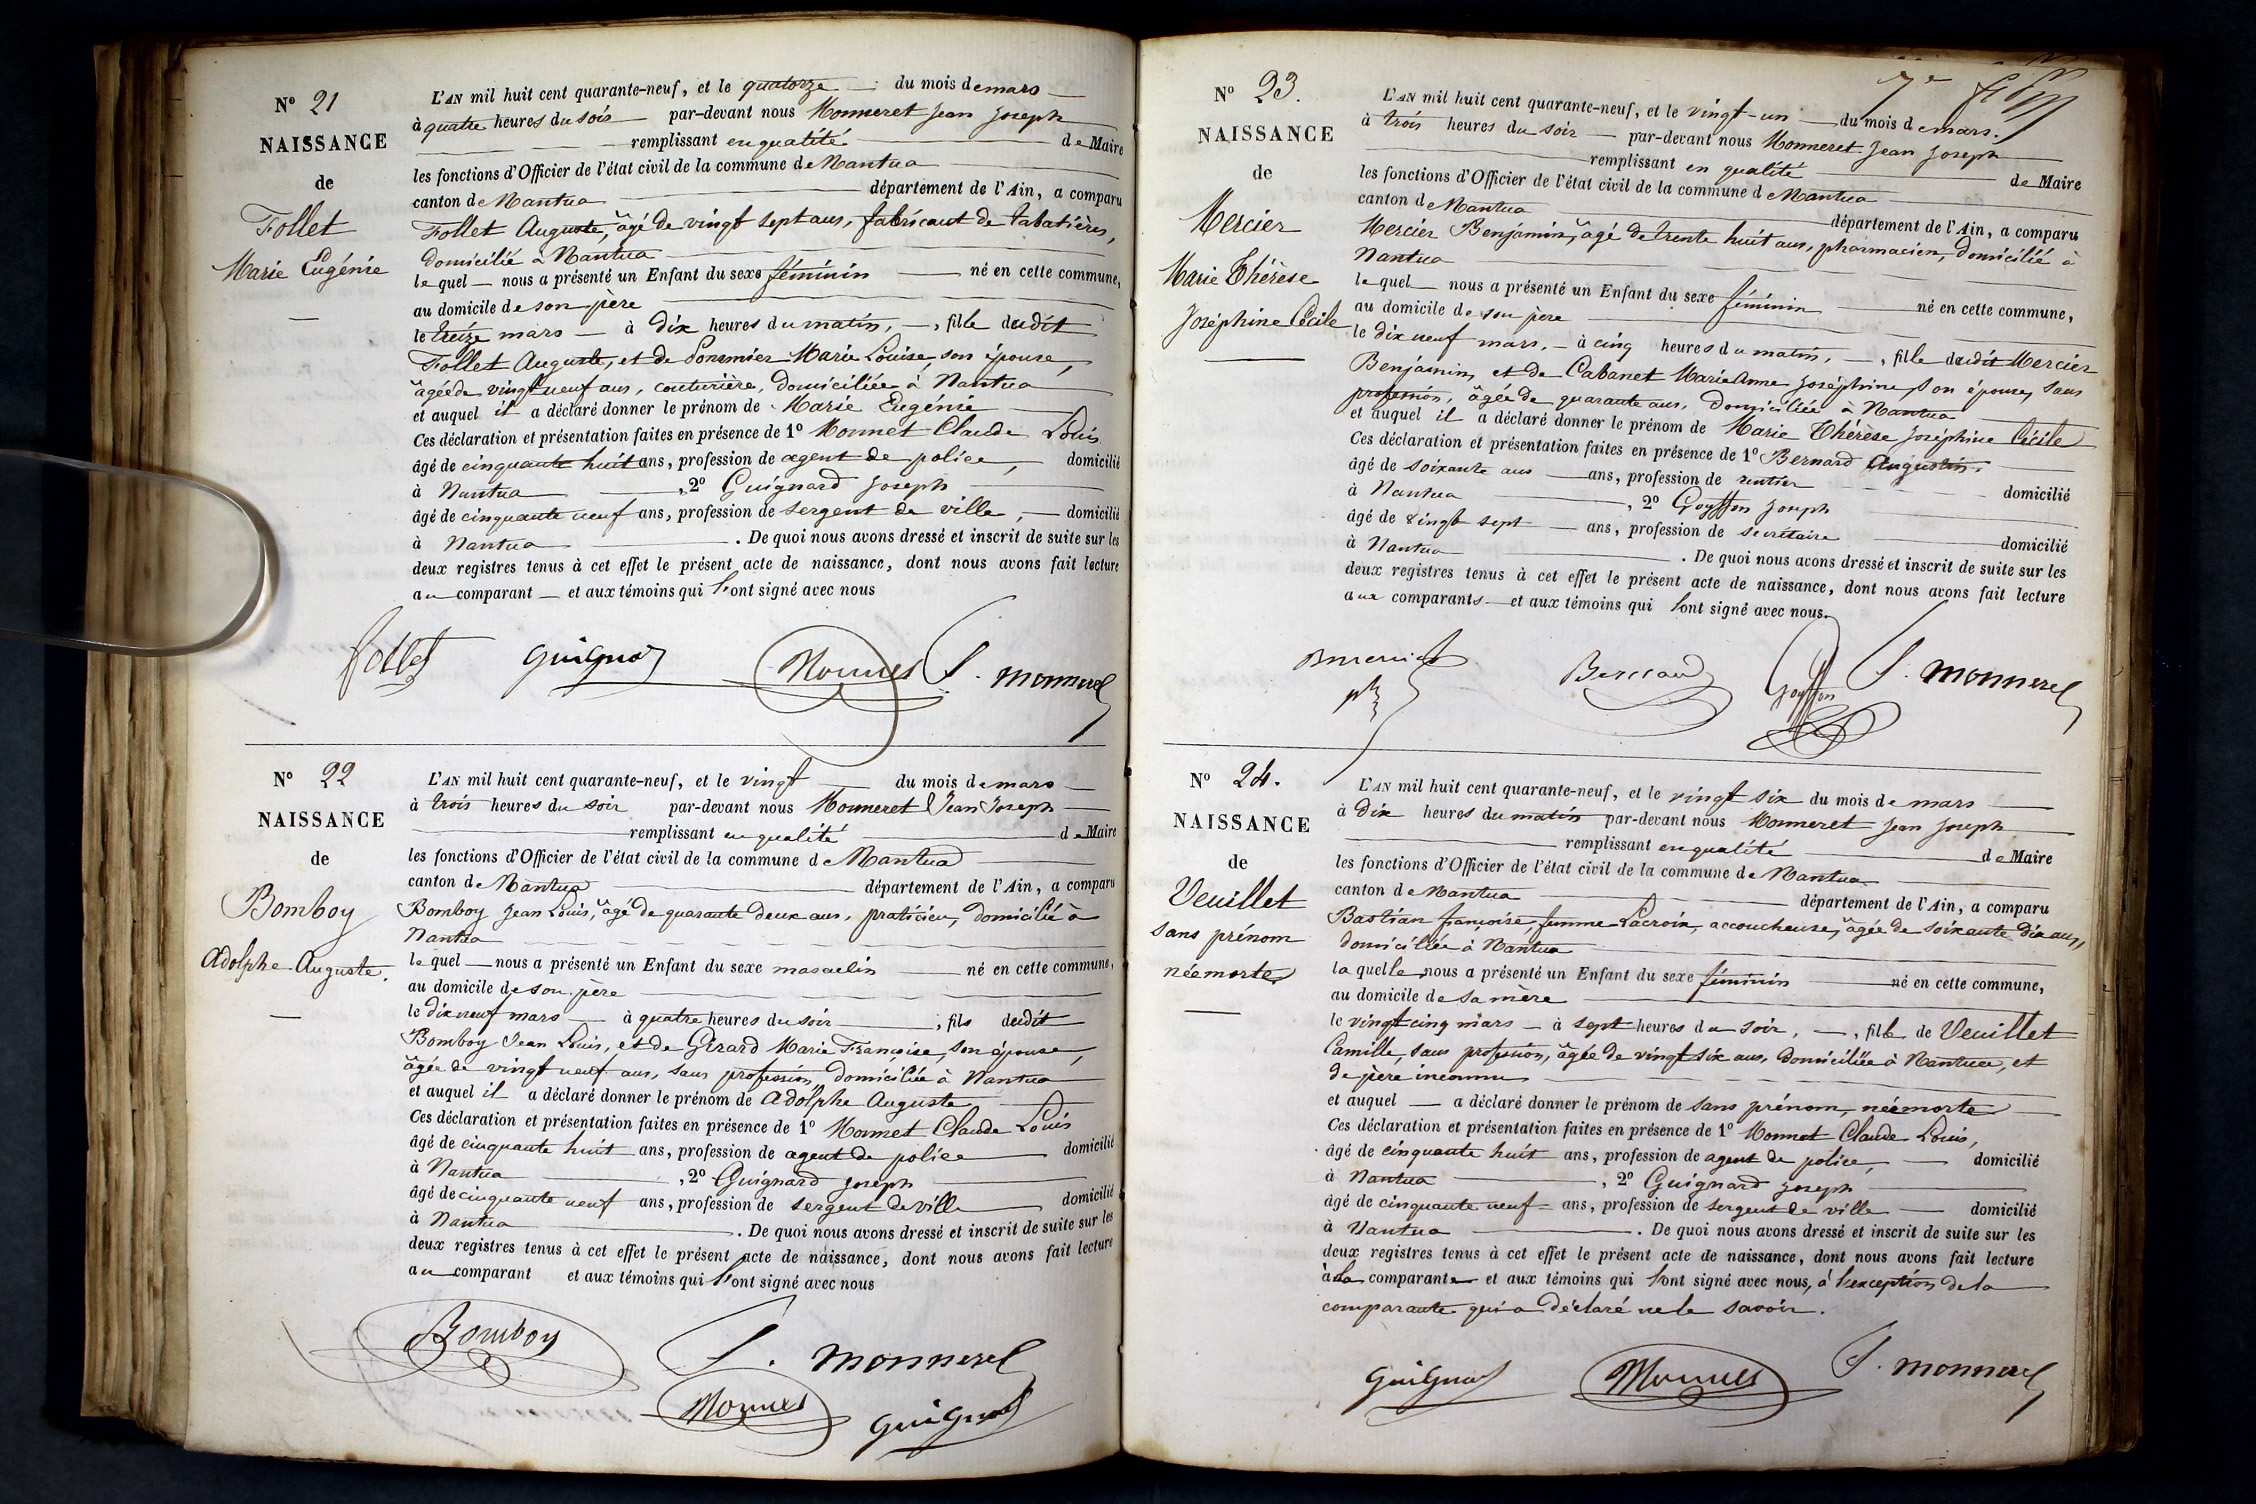 N° 21
NAISSANCE
de
Follet
Marie Eugénie
L'AN mil huit cent quarante-neuf, et le quatorze du mois de mars
à quatre heures du soir par-devant nous Monneret Jean Joseph
remplissant en qualité de Maire
les fonctions d'Officier de l'état civil de la commune de Nantua
canton de Nantua département de l'Ain, a comparu
Follet Auguste, âgé de vingt sept ans, fabricant de tabatières,
domicilié à Nantua
lequel nous a présenté un Enfant du sexe féminin né en cette commune,
au domicile de son père
le treize mars à dix heures du matin, , fille dudit
Follet Auguste, et de Sommier Marie Louise, son épouse,
âgée de vingt neuf ans, couturière, domiciliée à Nantua
et auquel il a déclaré donner le prénom de Marie Eugénie
Ces déclaration et présentation faites en présence de 1° Monnet Claude Louis
âgé de cinquante huit ans, profession de agent de police, domicilié
à Nantua , 2° Guignard Joseph
âgé de cinquante neuf ans, profession de sergent de ville, domicilié
à Nantua . De quoi nous avons dressé et inscrit de suite sur les
deux registres tenus à cet effet le présent acte de naissance, dont nous avons fait lecture
au comparant et aux témoins qui l'ont signé avec nous
follet guignard Monnet J. monneret
N° 22
NAISSANCE
de
Bomboy
Adolphe Auguste.
L'AN mil huit cent quarante-neuf, et le vingt du mois de mars
à trois heures du soir par-devant nous Monneret Jean Joseph
remplissant en qualité de Maire
les fonctions d'Officier de l'état civil de la commune de Nantua
canton de Nantua département de l'Ain, a comparu
Bomboy Jean Louis, âgé de quarante deux ans, praticien, domicilié à
Nantua
lequel nous a présenté un Enfant du sexe masculin né en cette commune,
au domicile de son père
le dix neuf mars à quatre heures du soir , fils dudit
Bomboy Jean Louis, et de Girard Marie Françoise, son épouse,
âgée de vingt neuf ans, sans profession, domiciliée à Nantua
et auquel il a déclaré donner le prénom de Adolphe Auguste
Ces déclaration et présentation faites en présence de 1° Monnet Claude Louis
âgé de cinquante huit ans, profession de agent de police domicilié
à Nantua , 2° Guignard Joseph
âgé de cinquante neuf ans, profession de sergent de ville domicilié
à Nantua . De quoi nous avons dressé et inscrit de suite sur les
deux registres tenus à cet effet le présent acte de naissance, dont nous avons fait lecture
au comparant et aux témoins qui l'ont signé avec nous
Bomboy J. monneret
Monnet guignard
7e
N° 23.
NAISSANCE
de
Mercier
Marie Thérèse
Joséphine Cécile
L'AN mil huit cent quarante-neuf, et le vingt-un du mois de mars.
à trois heures du soir par-devant nous Monneret Jean Joseph
remplissant en qualité de Maire
les fonctions d'Officier de l'état civil de la commune de Nantua
canton de Nantua département de l'Ain, a comparu
Mercier Benjamin, âgé de trente huit ans, pharmacien, domicilié à
Nantua
lequel nous a présenté un Enfant du sexe féminin né en cette commune,
au domicile de son père
le dix neuf mars, à cinq heures du matin, , fille dudit Mercier
Benjamin, et de Cabanet Marie Anne Joséphine, son épouse, sans
profession, âgée de quarante ans, domiciliée à Nantua
et auquel il a déclaré donner le prénom de Marie Thérèse Joséphine Cécile
Ces déclaration et présentation faites en présence de 1° Bernard Augustin.
âgé de soixante ans ans, profession de rentier domicilié
à Nantua , 2° Goyffon Joseph
âgé de vingt sept ans, profession de secrétaire domicilié
à Nantua . De quoi nous avons dressé et inscrit de suite sur les
deux registres tenus à cet effet le présent acte de naissance, dont nous avons fait lecture
aux comparants et aux témoins qui l'ont signé avec nous.
Bernard Goyffon J. monneret
N° 24.
NAISSANCE
de
Veuillet
sans prénom
née morte
L'AN mil huit cent quarante-neuf, et le vingt six du mois de mars
à dix heures du matin par-devant nous Monneret Jean Joseph
remplissant en qualité de Maire
les fonctions d'Officier de l'état civil de la commune de Nantua
canton de Nantua département de l'Ain, a comparu
Bastian françoise, femme Lacroix, accoucheuse, âgée de soixante dix ans,
domiciliée à Nantua
laquelle nous a présenté un Enfant du sexe féminin né en cette commune,
au domicile de sa mère
le vingt cinq mars à sept heures du soir, , fille de Veuillet
Camille, sans profession, âgée de vingt six ans, domiciliée à Nantua, et
de père inconnu
et auquel a déclaré donner le prénom de sans prénom, née morte
Ces déclaration et présentation faites en présence de 1° Monnet Claude Louis,
âgé de cinquante huit ans, profession de agent de police, domicilié
à Nantua , 2° Guignard Joseph
âgé de cinquante neuf ans, profession de sergent de ville domicilié
à Nantua . De quoi nous avons dressé et inscrit de suite sur les
deux registres tenus à cet effet le présent acte de naissance, dont nous avons fait lecture
à la comparante et aux témoins qui l'ont signé avec nous, à l'exception de la
comparante qui a déclaré ne le savoir.
guignard Monnet J. monneret